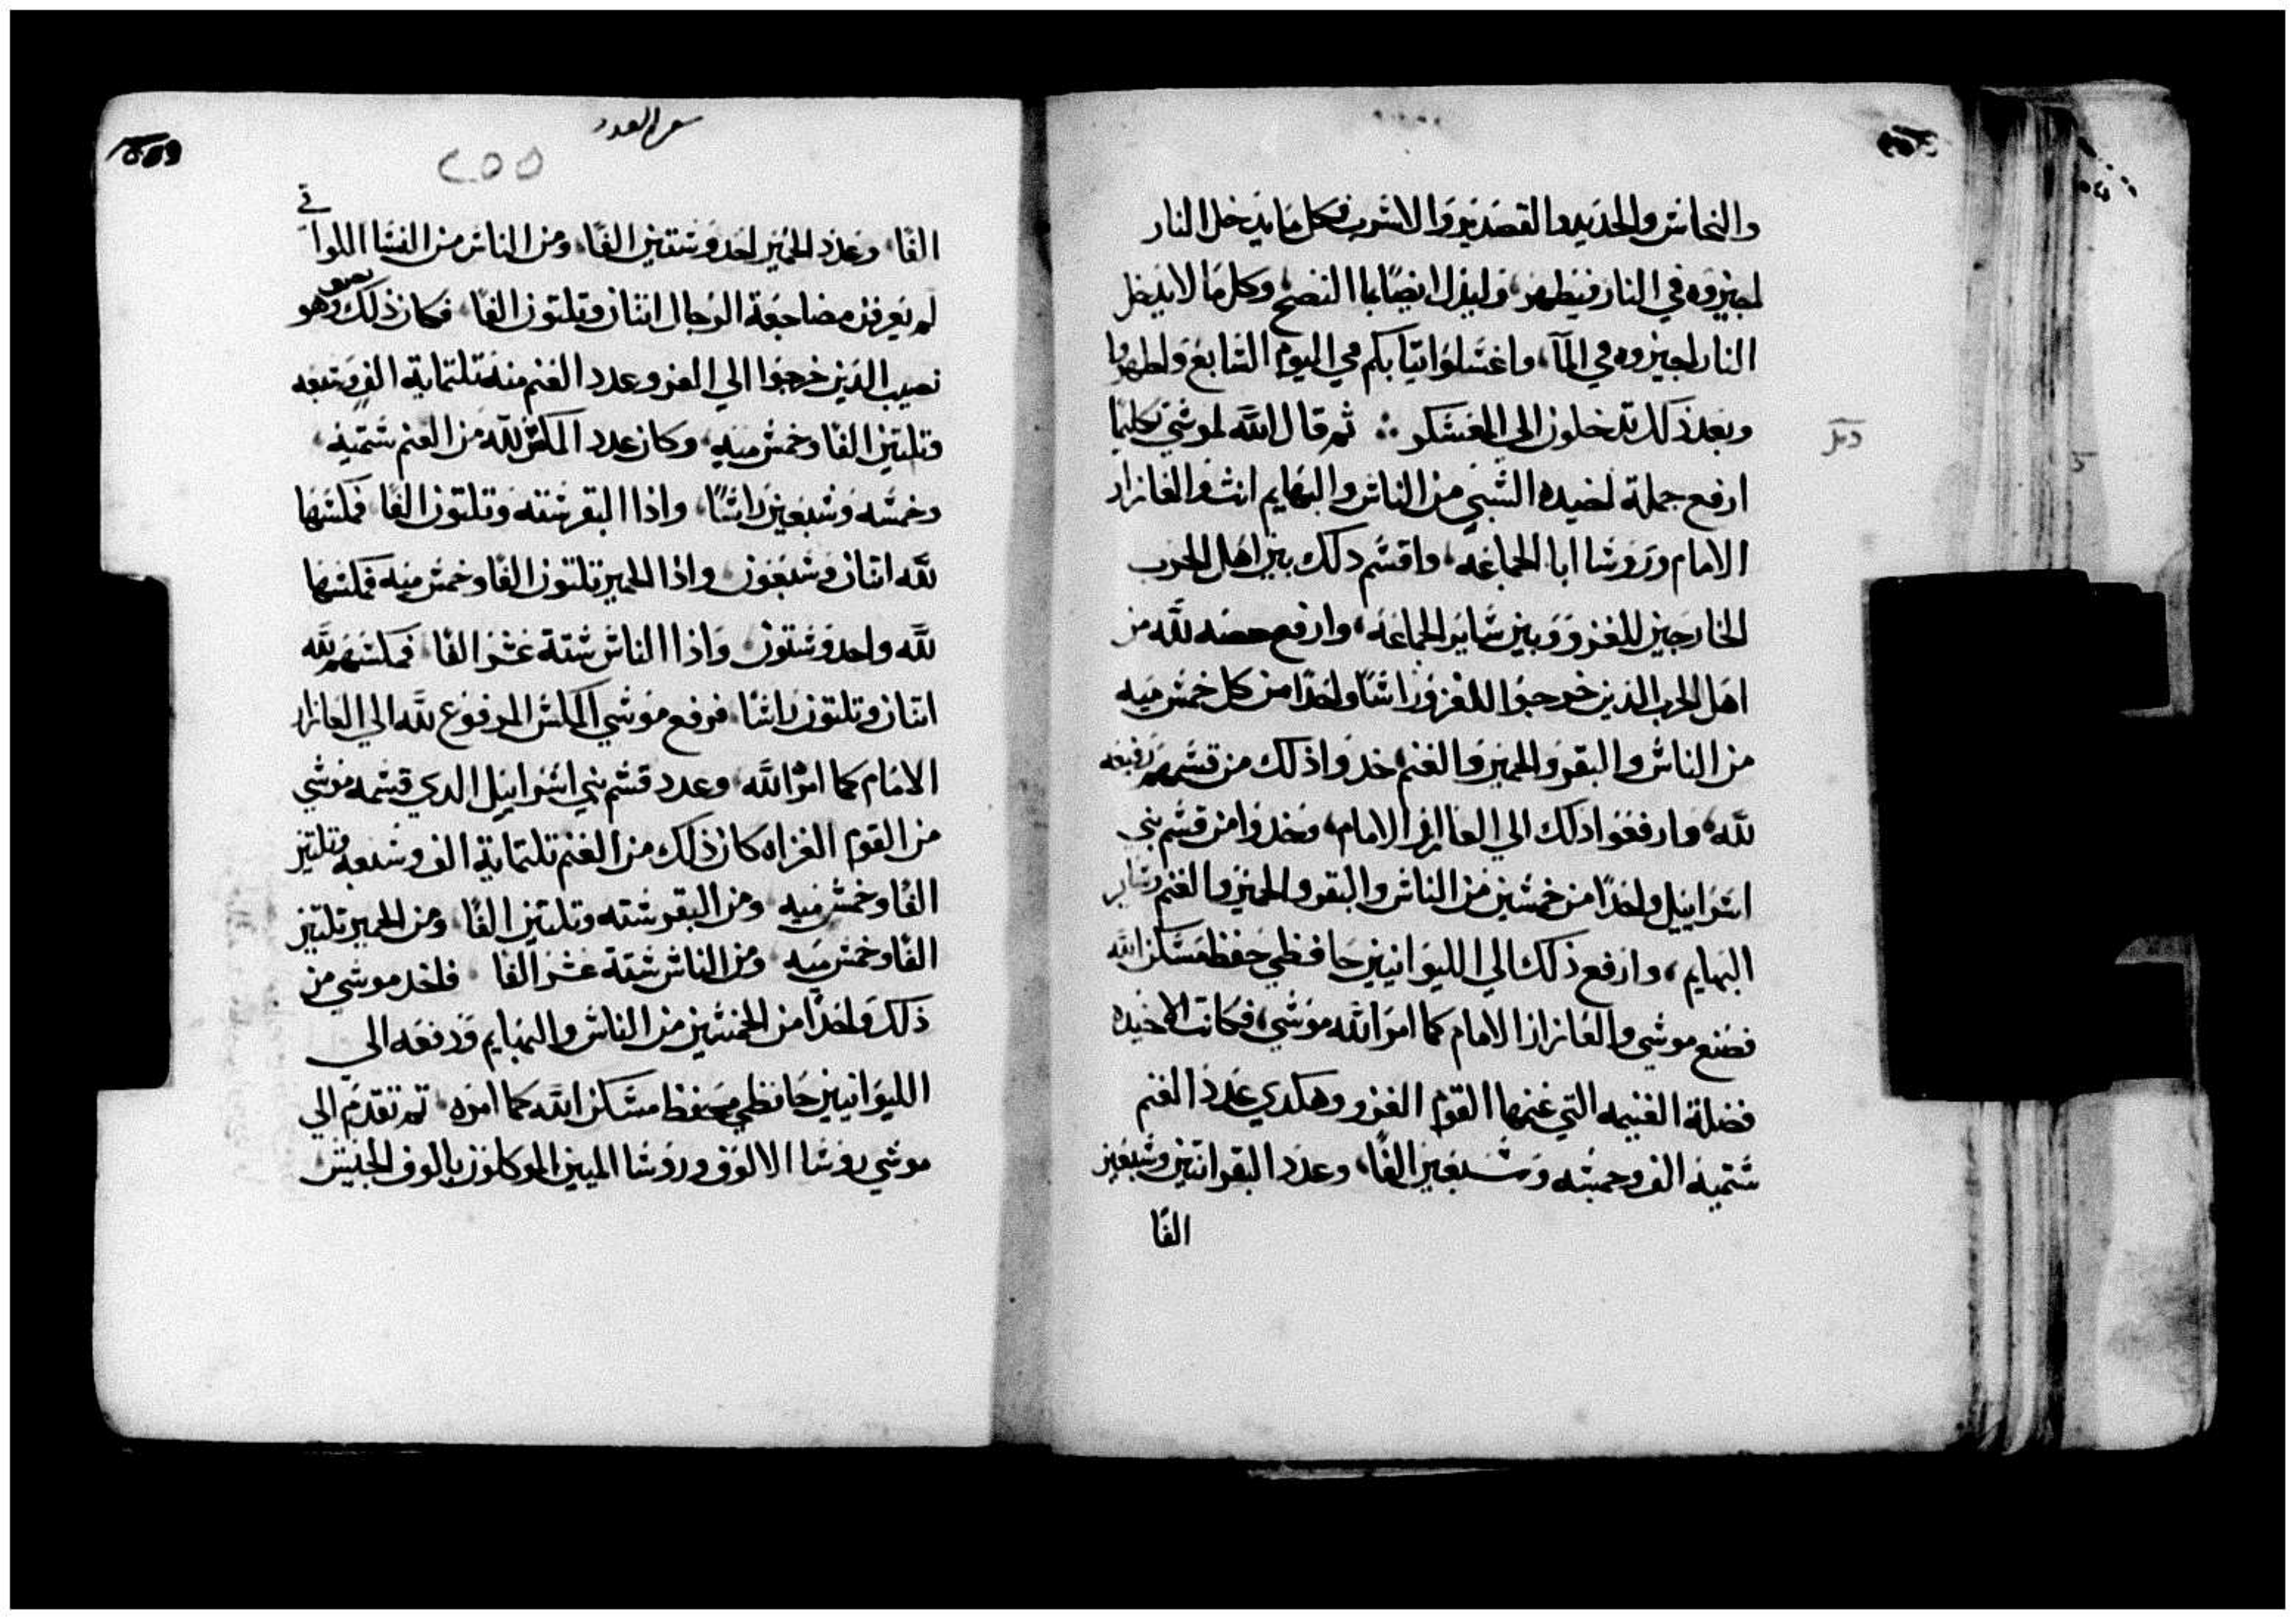 والنحاس والحديد والقصدير والاسرب وكل ما يدخل النار
اجيزوه في النار فيطهر، وليزل ايضًا بما النضح وكل ما لا يدخل
النار اجيزوه في المآ، واغسلوا تيابكم في اليوم السابع واطهروا
وبعد ذلك تدخلون الى المعسكر ثم قال الله لموسي تكليمًا
ارفع جملة اخيده السبي من الناس والبهايم انت والعازار
الامام وروسا ابا الجماعه، واقسم دلك بين اهل الحرب
الخارجين للغزو وبين ساير الجماعه، وارفع حصه لله من
اهل الحرب الدين خرجوا للغزو راسًا واحدًا من كل خمس ميه
من الناس والبقر والحمير والغنم خدوا ذلك من قسمهم رفيعه
لله، وارفعوا دلك الي العازار الامام، وخدوا من قسم بني
اسراييل واحدًا من خمسين من الناس والبقر والحمير والغنم وساير
البهايم، وارفع ذلك الي الليوانيين حافظي حفظ مسكن الله
فصنع موسي والعازار الامام كما امر الله موسي، فكانت الاخيده
فضلة الغنيمه التي غنمها القوم الغزو وهكدي عدد الغنم
ستميه الف وخمسه وسبعين الفًا، وعدد البقر اتنين وسبعين
الفًا
سفر العدد
٢٥٥
الفًا وعدد الحمير احد وستين الفًا ومن الناس من النسا اللواتي
لم يعرفن مضاجعة الرجال اتنان وتلتون الفًا فكان ذلك وهو
نصيب الدين خرجوا الي الغزو عدد الغنم منه تلتماية الف وسبعه
وتلتين الفًا وخمس ميه، وكان عدد المكس لله من الغنم ستميه
وخمسه وسبعين راسًا، واذا البقر سته وتلتون الفًا فمكسها
لله اتنان وسبعون واذا الحمير تلتون الفًا وخمس ميه فمكسها
لله واحد وستون واذا الناس ستة عشر الفًا فمكسهم لله
اتنان وتلتون راسًا، فرفع موسي المكس المرفوع لله الي العازار
الامام كما امر الله، وعدد قسم بني اسراييل الدي قسمه موسي
من القوم الغزاه كان ذلك من الغنم تلتماية الف وسبعه وتلتين
الفًا وخمس ميه ومن البقر سته وتلتين الفًا ومن الحمير تلتين
الفًا وخمس ميه ومن الناس ستة عشر الفا فاخد موسي من
ذلك واحدًا من الخمسين من الناس والبهايم ودفعه الى
الليوانيين حافظي محفظ مسكن الله كما امره تم تقدم الي
موسي روسا الالوف وروسا الميين الموكلون بالوف الجيش